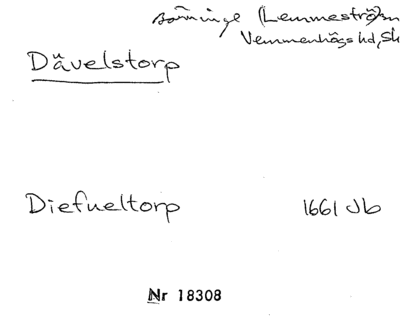 Börringe (Lemmeströ)sn
Vemmenhögs hd, Sk
Dävelstorp
Diefueltorp 1661 Jb
Nr 18308